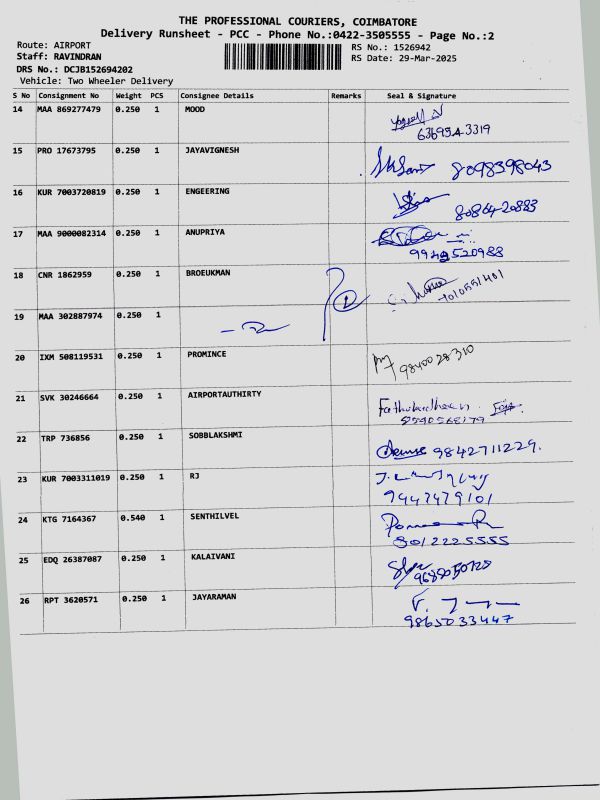 THE PROFESSIONAL COURIERS, COIMBATORE
Delivery Runsheet - PCC - Phone No.:0422-3505555 - Page No.:2
Route: AIRPORT
Staff: RAVINDRAN
DRS No.: DCJB152694202
Vehicle: Two Wheeler Delivery
RS No.: 1526942
RS Date: 29-Mar-2025
S No Consignment No Weight PCS Consignee Details Remarks Seal & Signature
14 MAA 869277479 0.250 1 MOOD
15 PRO 17673795 0.250 1 JAYAVIGNESH
8098398043
16 KUR 7003720819 0.250 1 ENGEERING
8086420883
17 MAA 9000082314 0.250 1 ANUPRIYA
18 CNR 1862959 0.250 1 BROEUKMAN
7010551401
19 MAA 302887974 0.250 1
20 IXM 508119531 0.250 1 PROMINCE
9840028310
21 SVK 30246664 0.250 1 AIRPORTAUTHIRTY
22 TRP 736856 0.250 1 SOBBLAKSHMI
9842711229.
23 KUR 7003311019 0.250 1 RJ
9447479101
24 KTG 7164367 0.540 1 SENTHILVEL
8012225555
25 EDQ 26387087 0.250 1 KALAIVANI
26 RPT 3620571 0.250 1 JAYARAMAN
9865033447